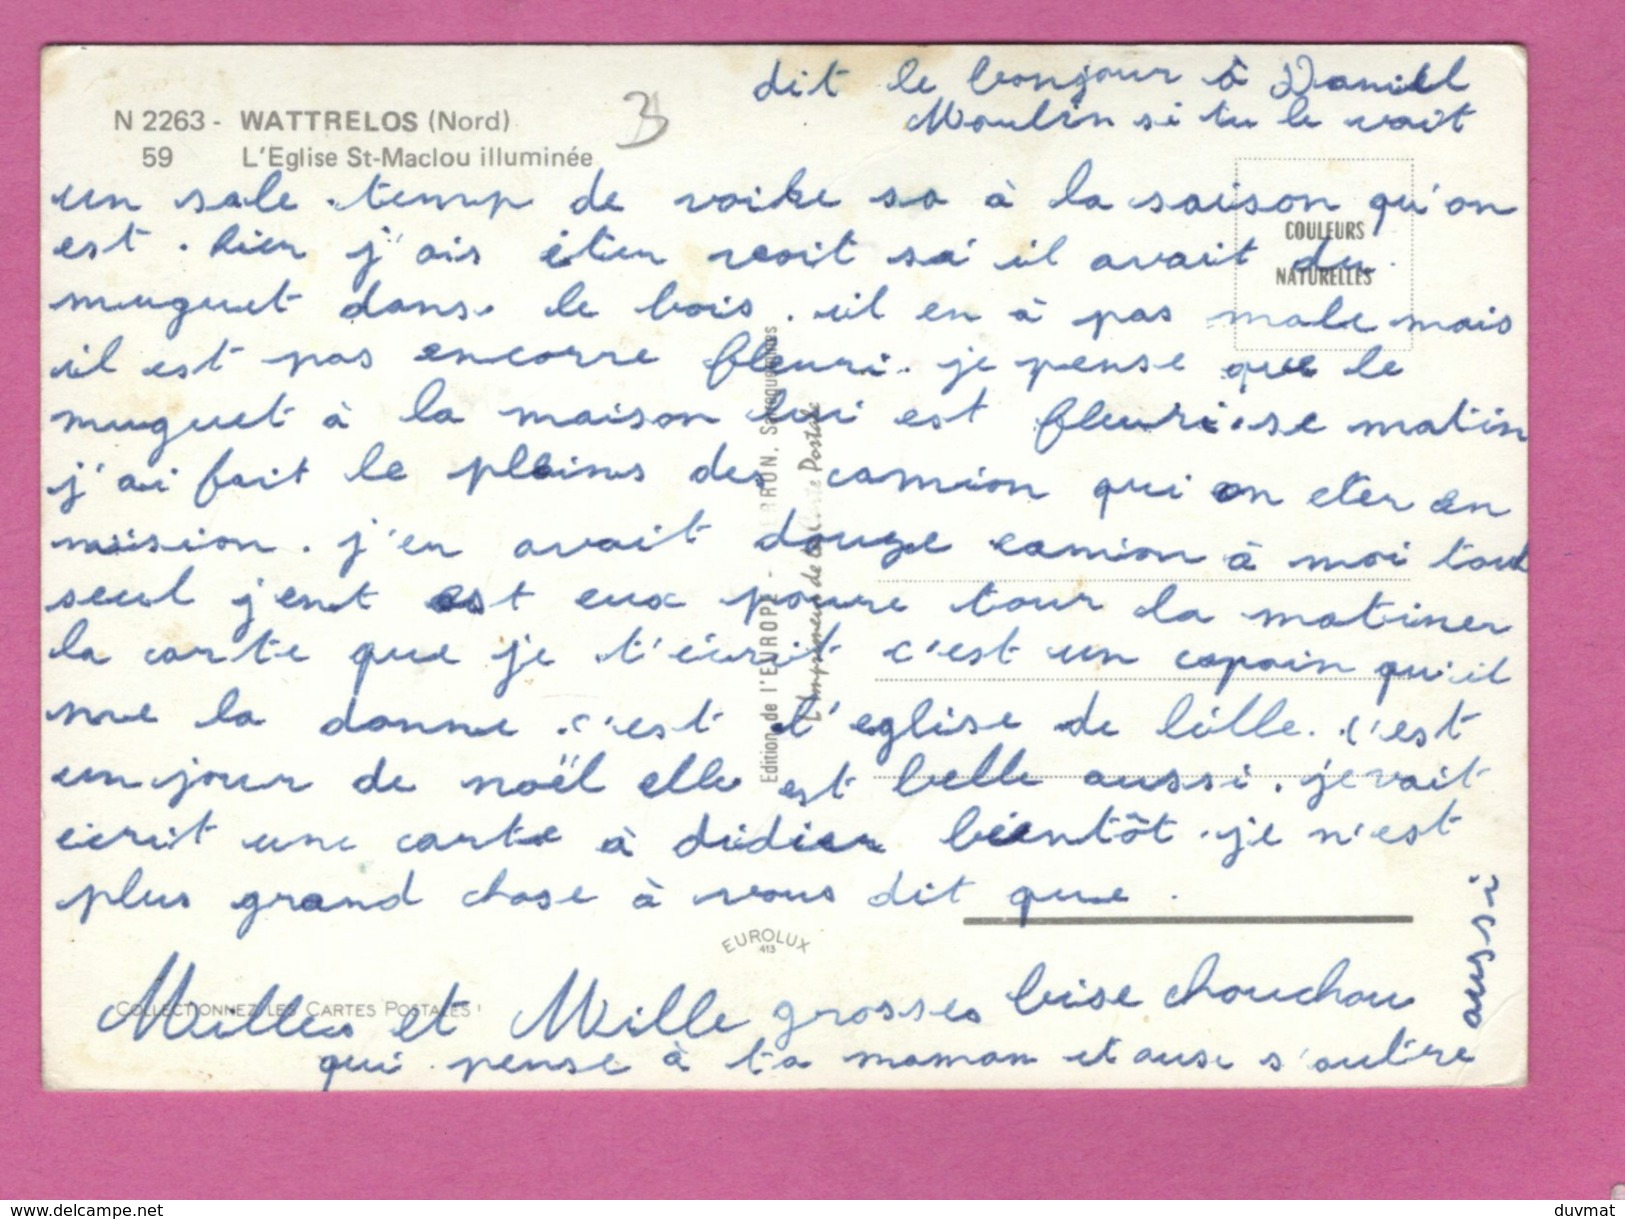 dit le bonjour à Daniel
Moulin si tu le voit
N 2263 - WATTRELOS (Nord)
59 L'Eglise St-Maclou illuminée
3
COULEURS
NATURELLES
un sale temp de voire sa à la saison qu'on
est . hier j'ais éter voit sa il avait du
muguet dans le bois . il en à pas male mais
il est pas encorre fleuri . je pense que le
muguet à la maison lui est fleuri . se matin
j'ai fait le pleins des camion qui on eter en
mission . j'en avait douze camion à moi tout
seul j'ent est eux poure tour la matiner
la carte que je t'écrit c'est un copain qu'il
me la donne . c'est l'eglise de lille . c'est
un jour de noël elle est belle aussi . je vait
écrit une carte à didier bientôt . je n'est
plus grand chose à vous dit que .
Milles et Mille grosses bise chouchou
qui pense à ta maman et ause s'autre
aussi
Edition de l'EUROPE - PIERRON, Sarreguemines
L'Imprimeur de la Carte Postale
EUROLUX
413
COLLECTIONNEZ LES CARTES POSTALES !
Delcampe.net
duvmat